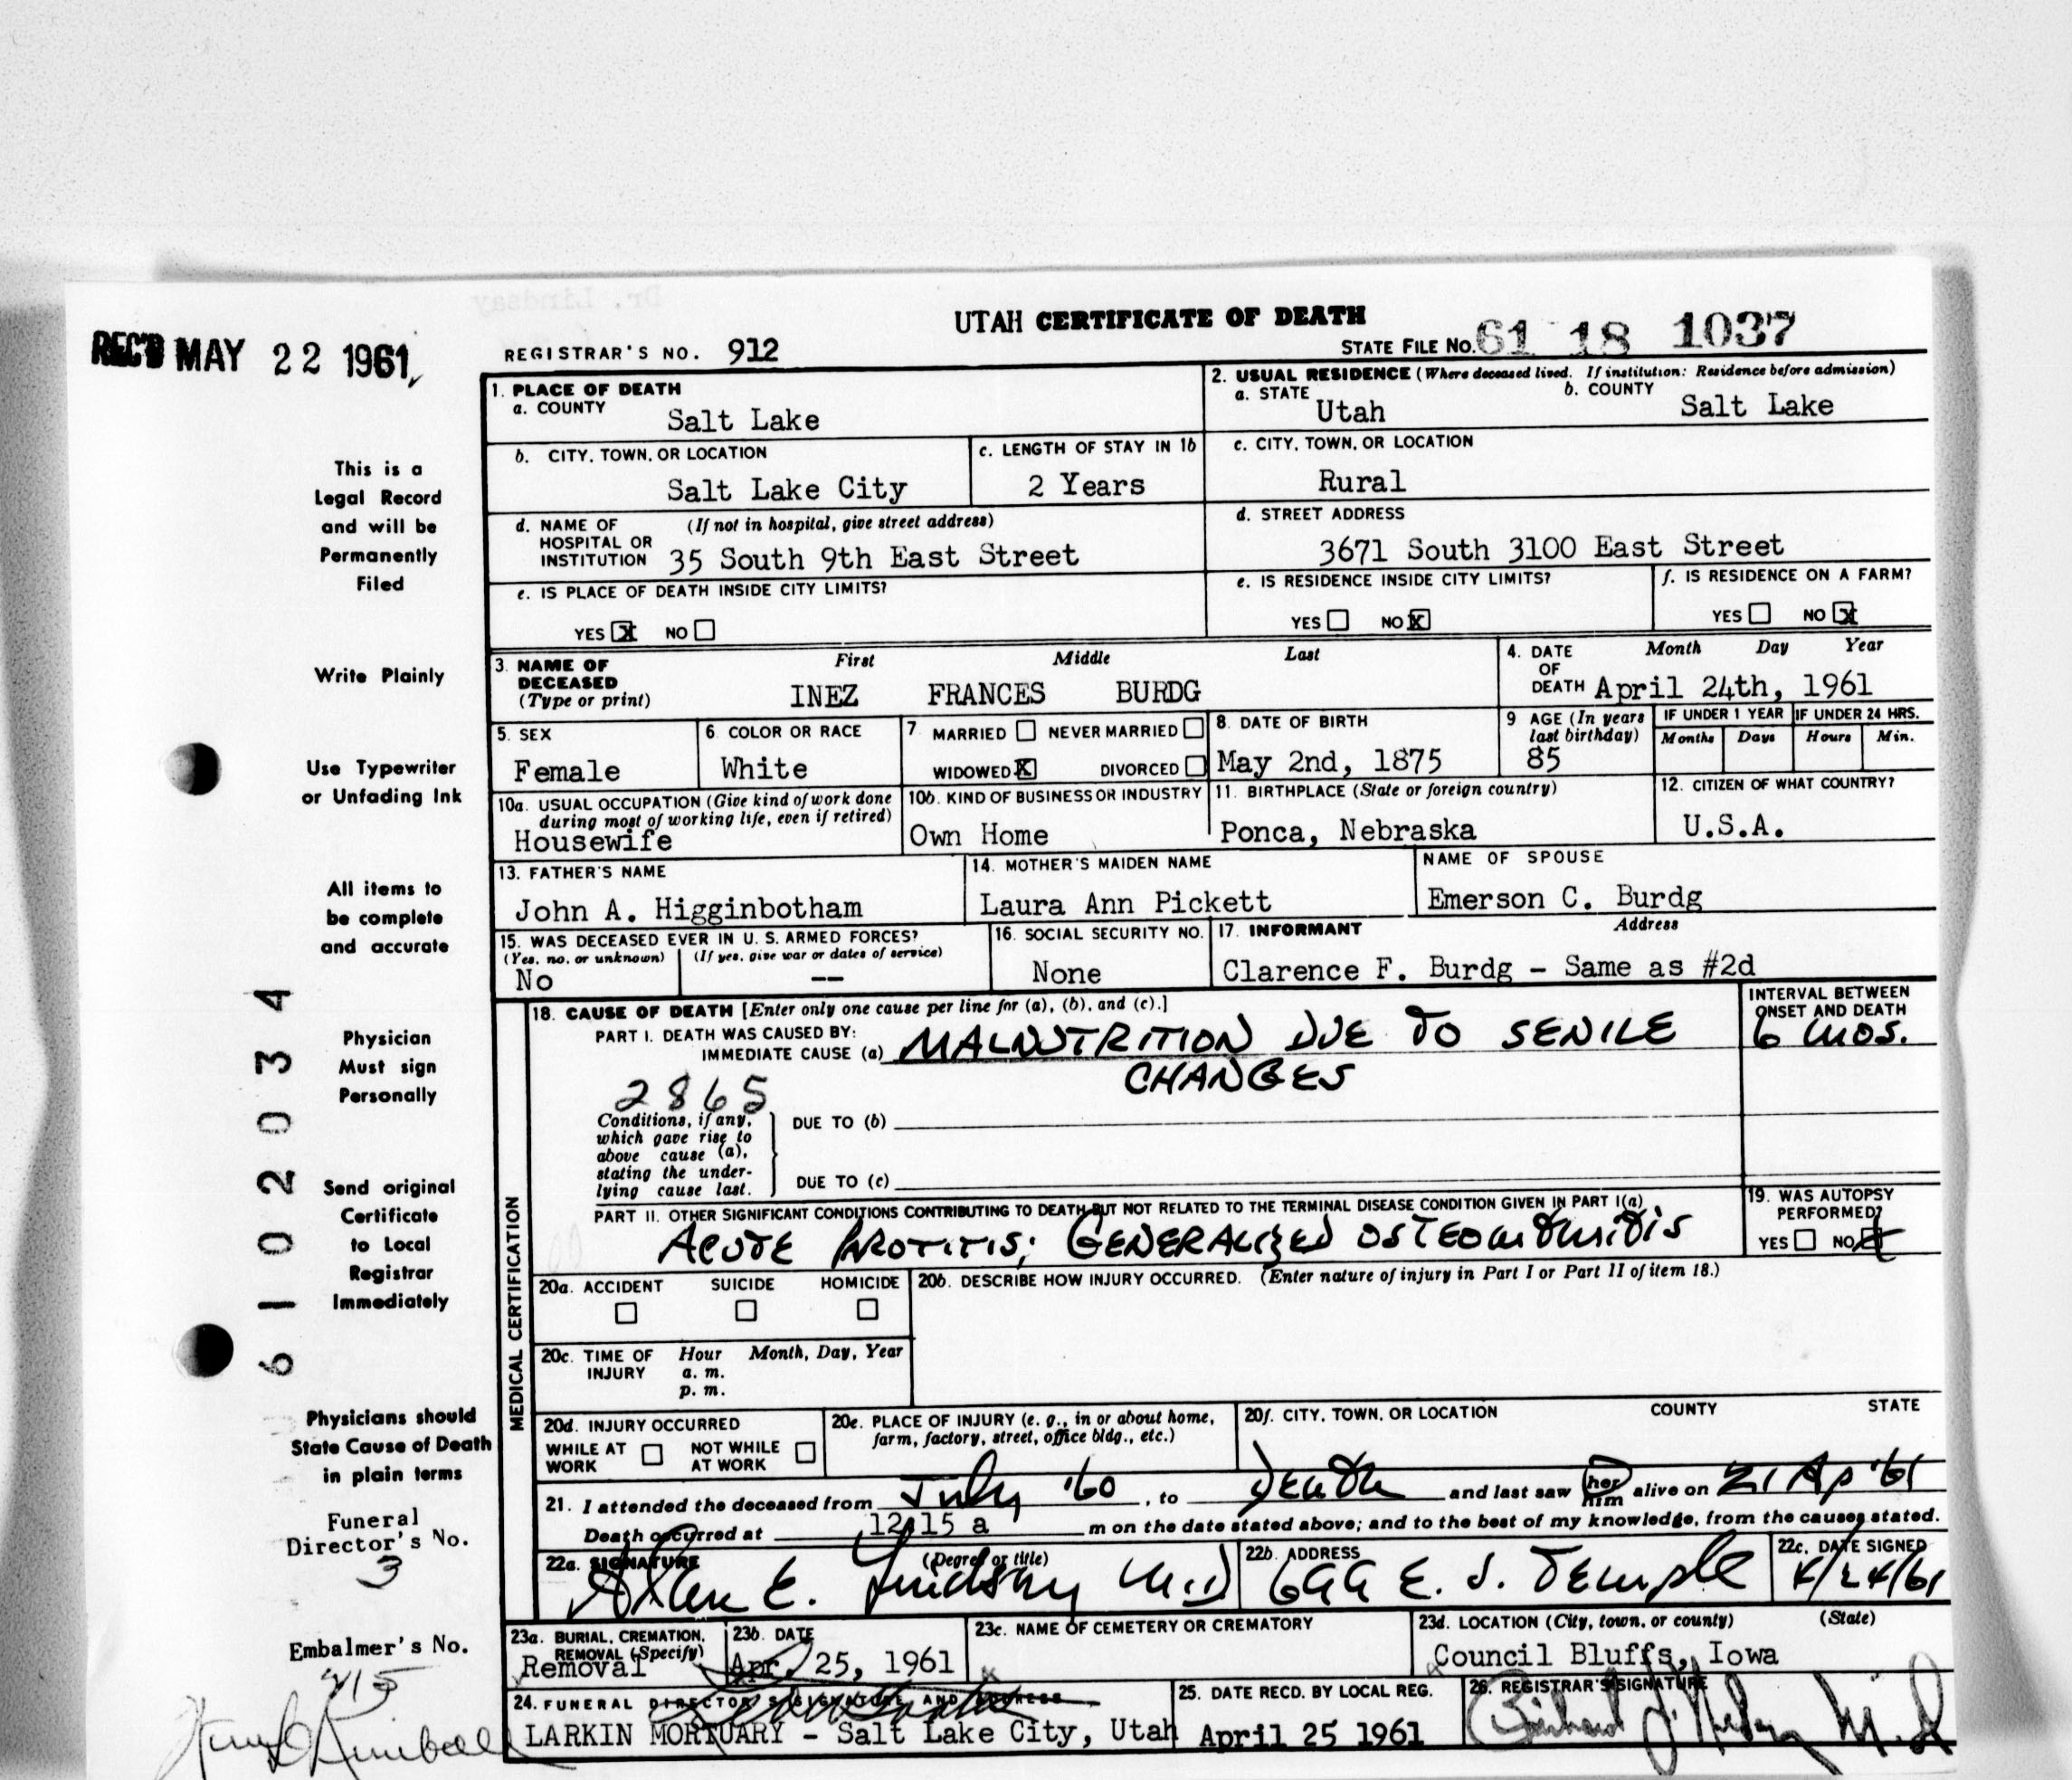 UTAH CERTIFICATE OF DEATH
REC'D MAY 22 1961
REGISTRAR'S NO. 912
STATE FILE No. 61 18 1037
1. PLACE OF DEATH
a. COUNTY
Salt Lake
2. USUAL RESIDENCE (Where deceased lived. If institution: Residence before admission)
a. STATE Utah
b. COUNTY Salt Lake
b. CITY, TOWN, OR LOCATION
Salt Lake City
c. LENGTH OF STAY IN 1b
2 Years
c. CITY, TOWN, OR LOCATION
Rural
d. NAME OF HOSPITAL OR INSTITUTION (If not in hospital, give street address)
35 South 9th East Street
d. STREET ADDRESS
3671 South 3100 East Street
e. IS PLACE OF DEATH INSIDE CITY LIMITS?
YES X NO
e. IS RESIDENCE INSIDE CITY LIMITS?
YES NO X
f. IS RESIDENCE ON A FARM?
YES NO X
3. NAME OF DECEASED (Type or print)
First Middle Last
INEZ FRANCES BURDG
4. DATE OF DEATH
Month Day Year
April 24th, 1961
5. SEX
Female
6. COLOR OR RACE
White
7. MARRIED NEVER MARRIED
WIDOWED X DIVORCED
8. DATE OF BIRTH
May 2nd, 1875
9 AGE (In years last birthday)
85
IF UNDER 1 YEAR
Months Days
IF UNDER 24 HRS.
Hours Min.
10a. USUAL OCCUPATION (Give kind of work done during most of working life, even if retired)
Housewife
10b. KIND OF BUSINESS OR INDUSTRY
Own Home
11. BIRTHPLACE (State or foreign country)
Ponca, Nebraska
12. CITIZEN OF WHAT COUNTRY?
U.S.A.
13. FATHER'S NAME
John A. Higginbotham
14. MOTHER'S MAIDEN NAME
Laura Ann Pickett
NAME OF SPOUSE
Emerson C. Burdg
15. WAS DECEASED EVER IN U. S. ARMED FORCES?
(Yes, no, or unknown) (If yes, give war or dates of service)
No --
16. SOCIAL SECURITY NO.
None
17. INFORMANT Address
Clarence F. Burdg - Same as #2d
MEDICAL CERTIFICATION
18. CAUSE OF DEATH [Enter only one cause per line for (a), (b), and (c).]
PART I. DEATH WAS CAUSED BY:
IMMEDIATE CAUSE (a) MALNUTRITION DUE TO SENILE
CHANGES
INTERVAL BETWEEN ONSET AND DEATH
6 mos.
2865
Conditions, if any, which gave rise to above cause (a), stating the underlying cause last.
DUE TO (b)
DUE TO (c)
PART II. OTHER SIGNIFICANT CONDITIONS CONTRIBUTING TO DEATH BUT NOT RELATED TO THE TERMINAL DISEASE CONDITION GIVEN IN PART I(a)
ACUTE PAROTITIS; GENERALIZED
19. WAS AUTOPSY PERFORMED?
YES NO X
20a. ACCIDENT SUICIDE HOMICIDE
20b. DESCRIBE HOW INJURY OCCURRED. (Enter nature of injury in Part I or Part II of item 18.)
20c. TIME OF INJURY
Hour Month, Day, Year
a. m.
p. m.
20d. INJURY OCCURRED
WHILE AT WORK NOT WHILE AT WORK
20e. PLACE OF INJURY (e. g., in or about home, farm, factory, street, office bldg., etc.)
20f. CITY, TOWN, OR LOCATION COUNTY STATE
21. I attended the deceased from July '60, to Death and last saw her him alive on 21 Ap '61
Death occurred at 12:15 a m on the date stated above; and to the best of my knowledge, from the causes stated.
22a. SIGNATURE (Degree or title)
Allen E. Lindsay M.D
22b. ADDRESS
699 E. S. Temple
22c. DATE SIGNED
4/24/61
23a. BURIAL, CREMATION, REMOVAL (Specify)
Removal
23b. DATE
Apr. 25, 1961
23c. NAME OF CEMETERY OR CREMATORY
23d. LOCATION (City, town, or county) (State)
Council Bluffs, Iowa
24. FUNERAL DIRECTOR'S SIGNATURE AND ADDRESS
LARKIN MORTUARY - Salt Lake City, Utah
25. DATE RECD. BY LOCAL REG.
April 25 1961
26. REGISTRAR'S SIGNATURE
This is a
Legal Record
and will be
Permanently
Filed
Write Plainly
Use Typewriter
or Unfading Ink
All items to
be complete
and accurate
Physician
Must sign
Personally
Send original
Certificate
to Local
Registrar
Immediately
Physicians should
State Cause of Death
in plain terms
Funeral
Director's No.
3
Embalmer's No.
415
61 02034
Dr. Lindsay